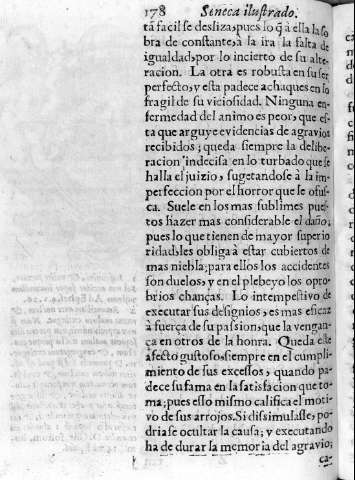 178 Seneca ilustrado.
tã facil se desliza, pues lo q̃ à ella la so
bra de constante, à la ira la falta de
igualdad, por lo incierto de su alte-
racion. La otra es robusta en su ser
perfecto, y esta padece achaques en lo
fragil de su viciosidad. Ninguna en-
fermedad del animo es peor, que es-
ta que arguye evidencias de agravios
recibidos; queda siempre la delibe-
racion indecisa en lo turbado que se
halla el juizio, sugetandose à la im-
perfeccion por el horror que le ofus-
ca. Suele en los mas sublimes pues-
tos hazer mas considerable el daño;
pues lo que tienen de mayor superio
ridad, les obliga à estar cubiertos de
mas niebla; para ellos los accidentes
son duelos, y en el plebeyo los opro-
brios chanças. Lo intempestivo de
executar sus designios, es mas eficaz
à fuerça de su passion, que la vengan-
ça en otros de la honra. Queda este
afecto gustoso, siempre en el cumpli-
miento de sus excessos, quando pa-
dece su fama en la satisfacion que to-
ma; pues esso mismo califica el moti-
vo de sus arrojos. Si dissimulasse, po-
dria se ocultar la causa; y executando
ha de durar la memoria del agravio;
ca-